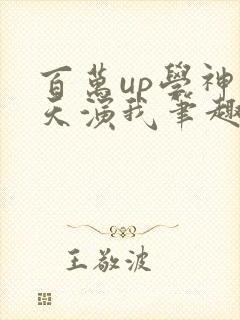 百萬up學神
天演我筆趣
王敬波